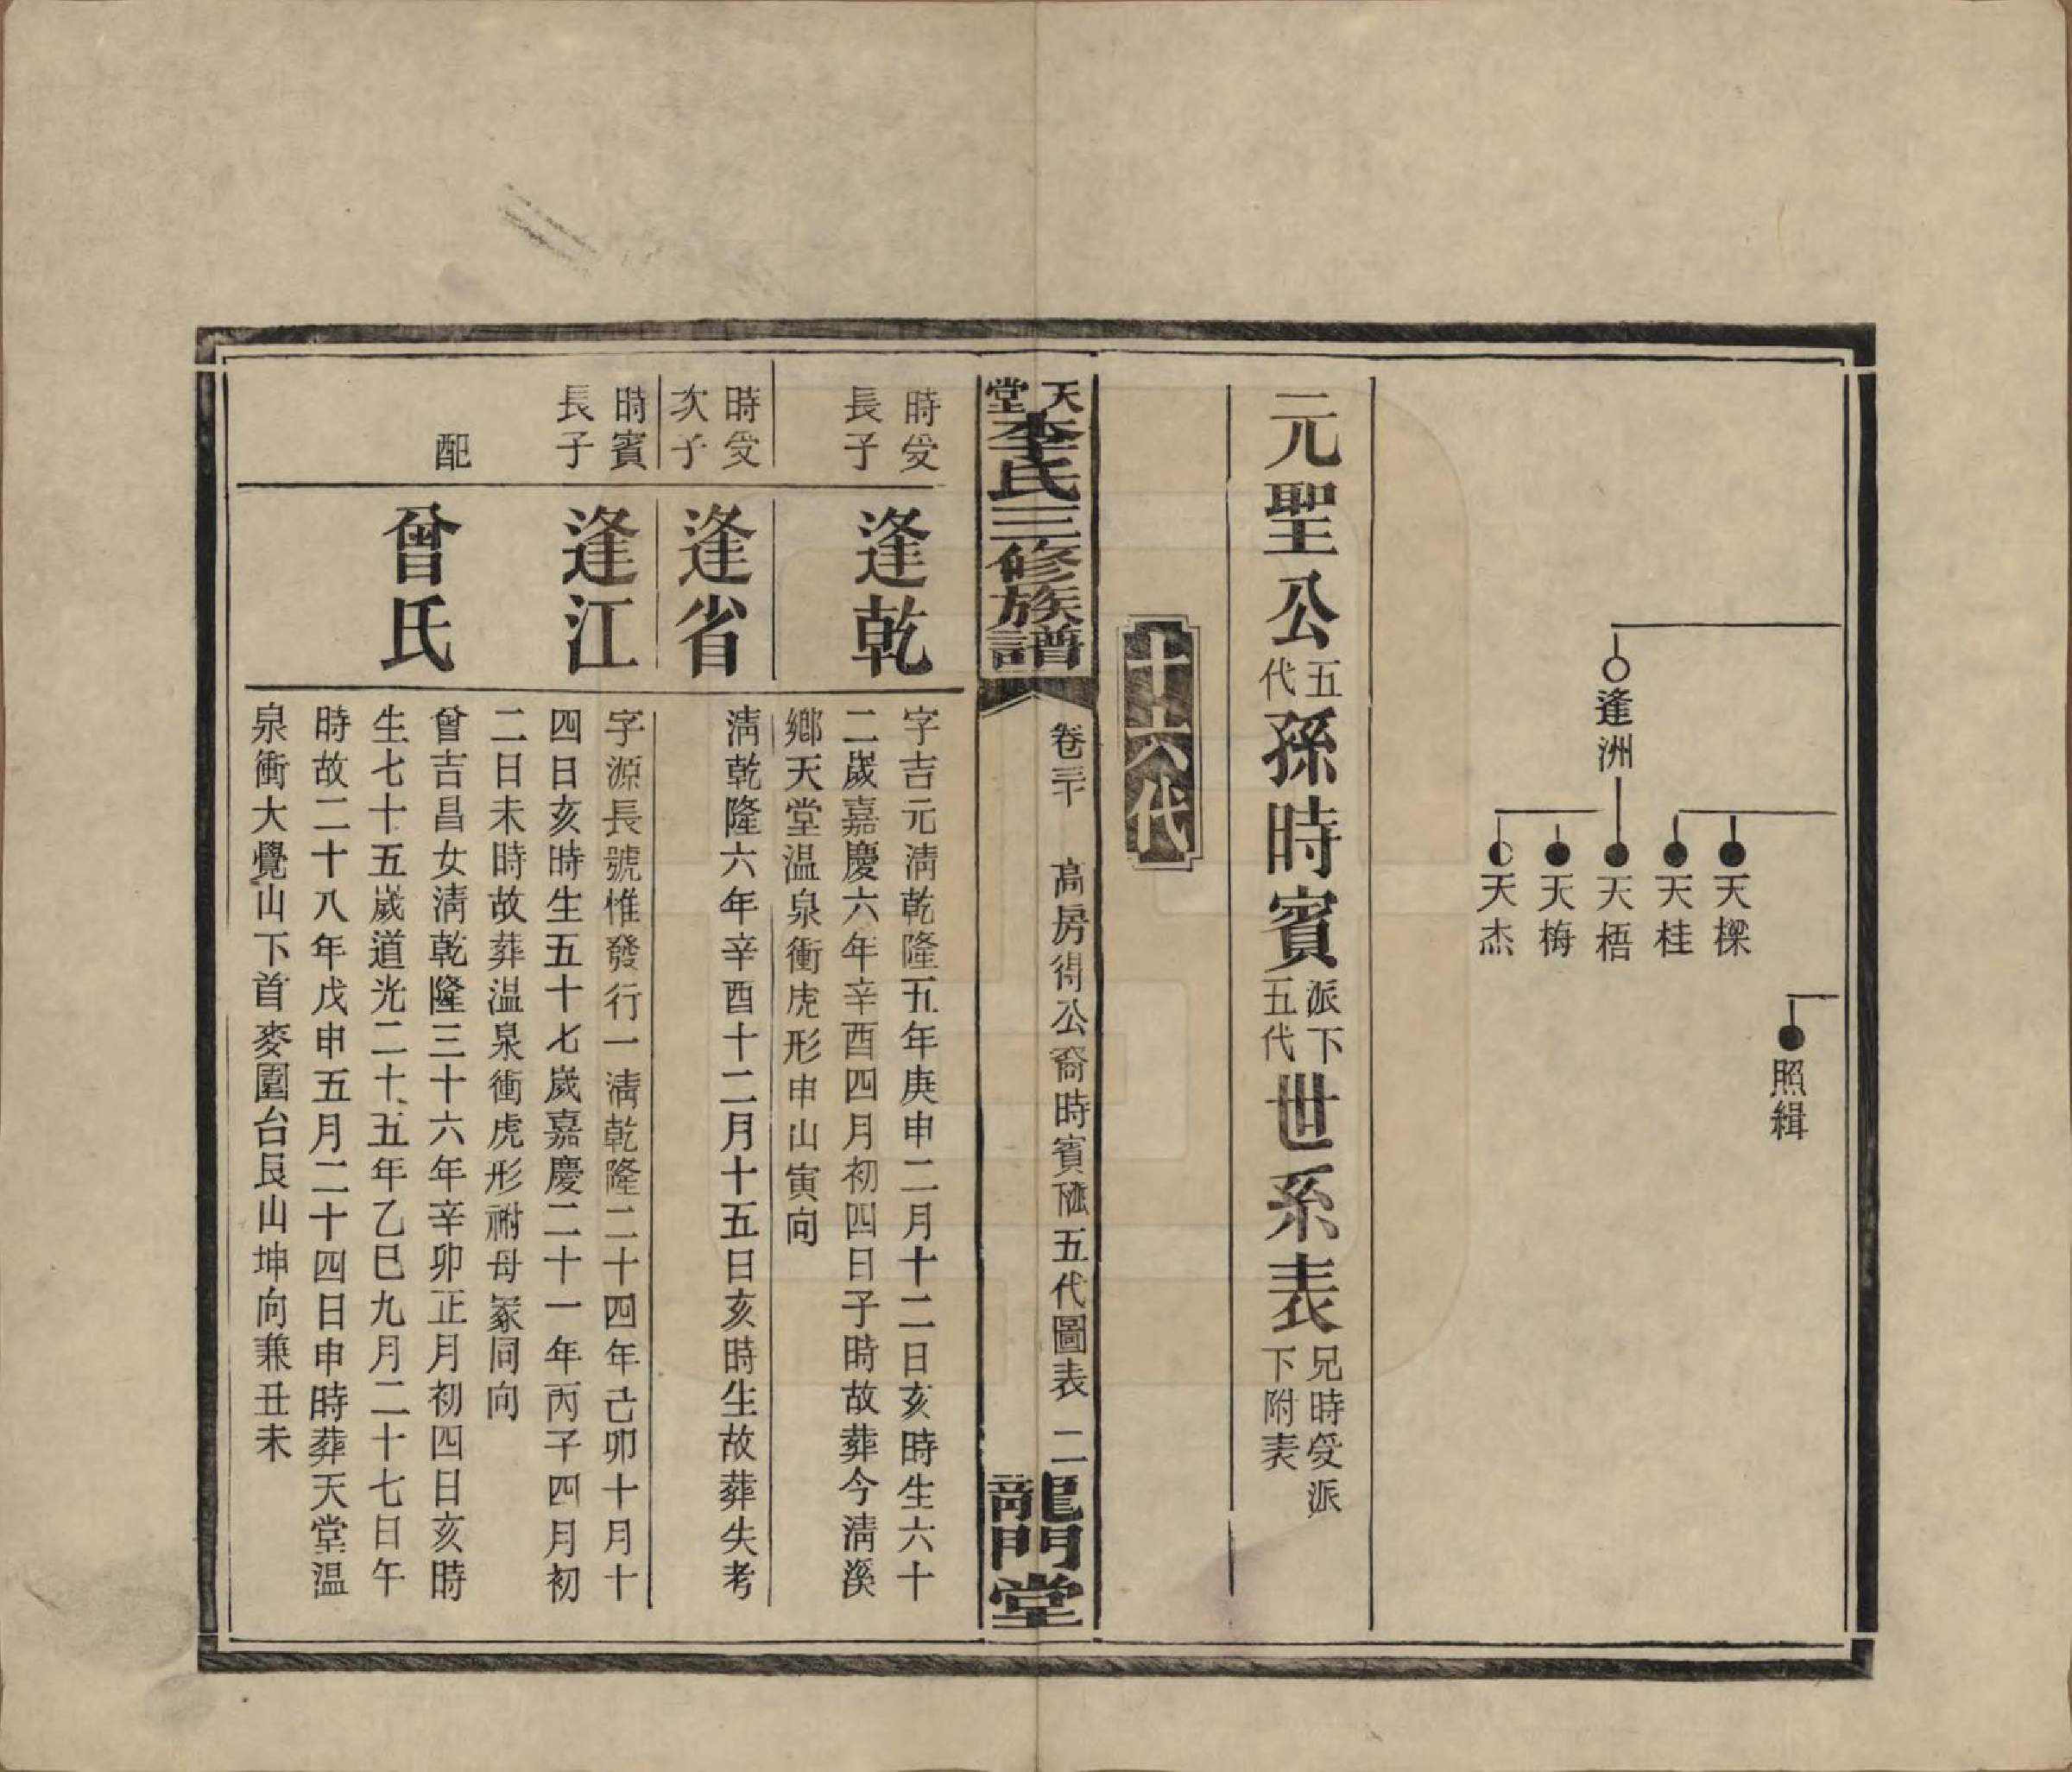 照緝
天樑
天桂
逢洲
天梧
天梅
天杰
元聖公五代孫時賓派下五代世系表兄時受派下附表
十六代
天堂李氏三修族譜
卷三十 高房得公裔時賓派五代圖表 二
龍門堂
時受長子
逢乾
字吉元清乾隆五年庚申二月十二日亥時生六十
二歲嘉慶六年辛酉四月初四日子時故葬今清溪
鄉天堂温泉衝虎形申山寅向
時受次子
逢省
清乾隆六年辛酉十二月十五日亥時生故葬失考
時賓長子
逢江
字源長號惟發行一清乾隆二十四年己卯十月十
四日亥時生五十七歲嘉慶二十一年丙子四月初
二日未時故葬温泉衝虎形祔母冢同向
配
曾氏
曾吉昌女清乾隆三十六年辛卯正月初四日亥時
生七十五歲道光二十五年乙巳九月二十七日午
時故二十八年戊申五月二十四日申時葬天堂温
泉衝大覺山下首麥園台艮山坤向兼丑未